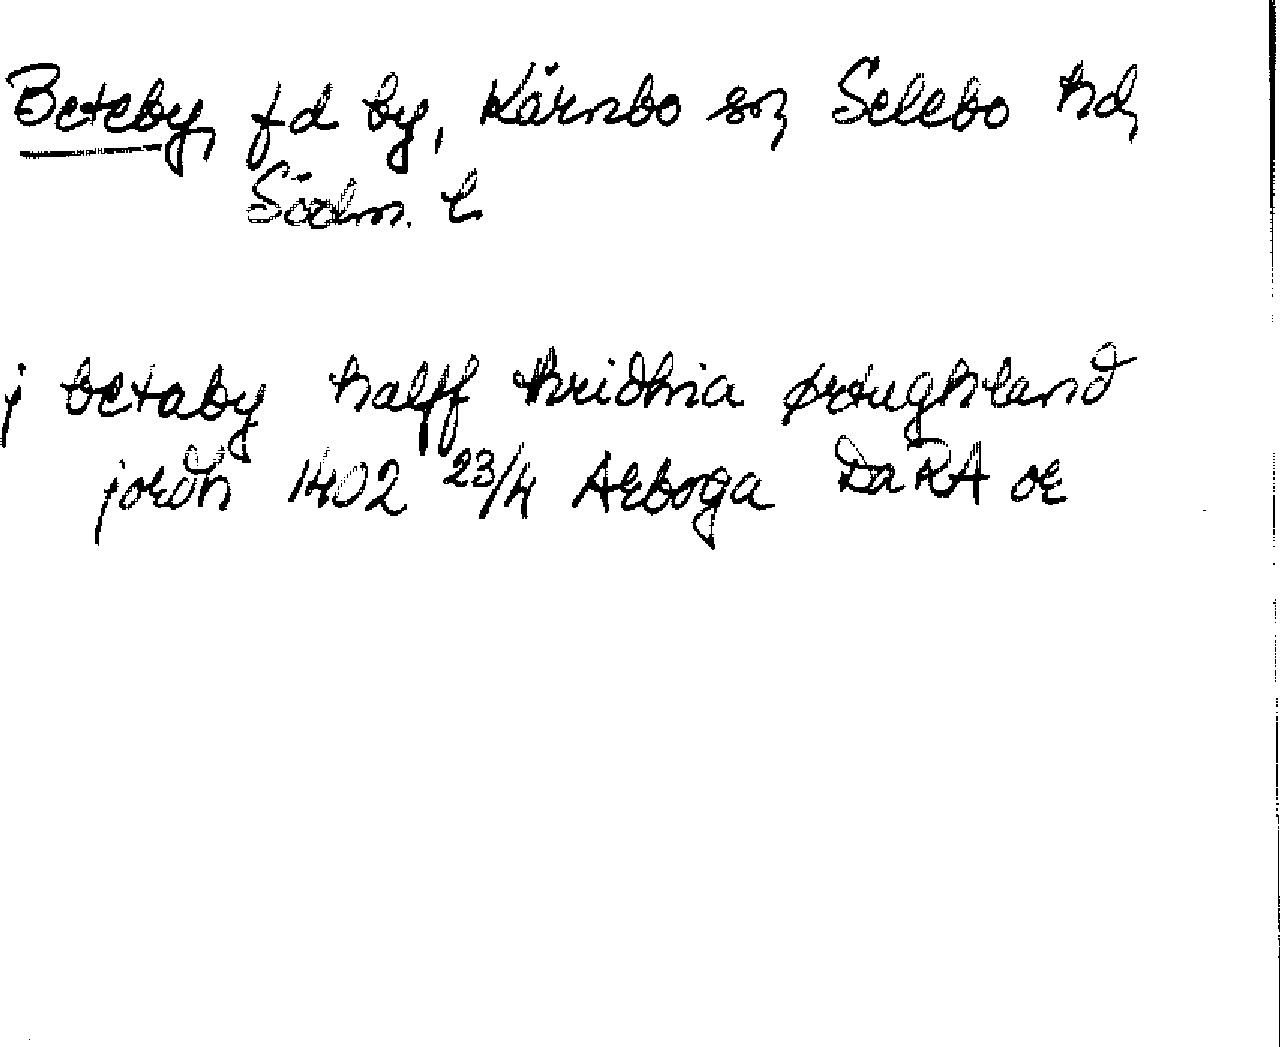 Beteby, f d by, Kärnbo sn, Selebo hd,
Södm. l
j betaby halff thridhia ørtughland
jordh 1402 23/4 Arboga DaRA or